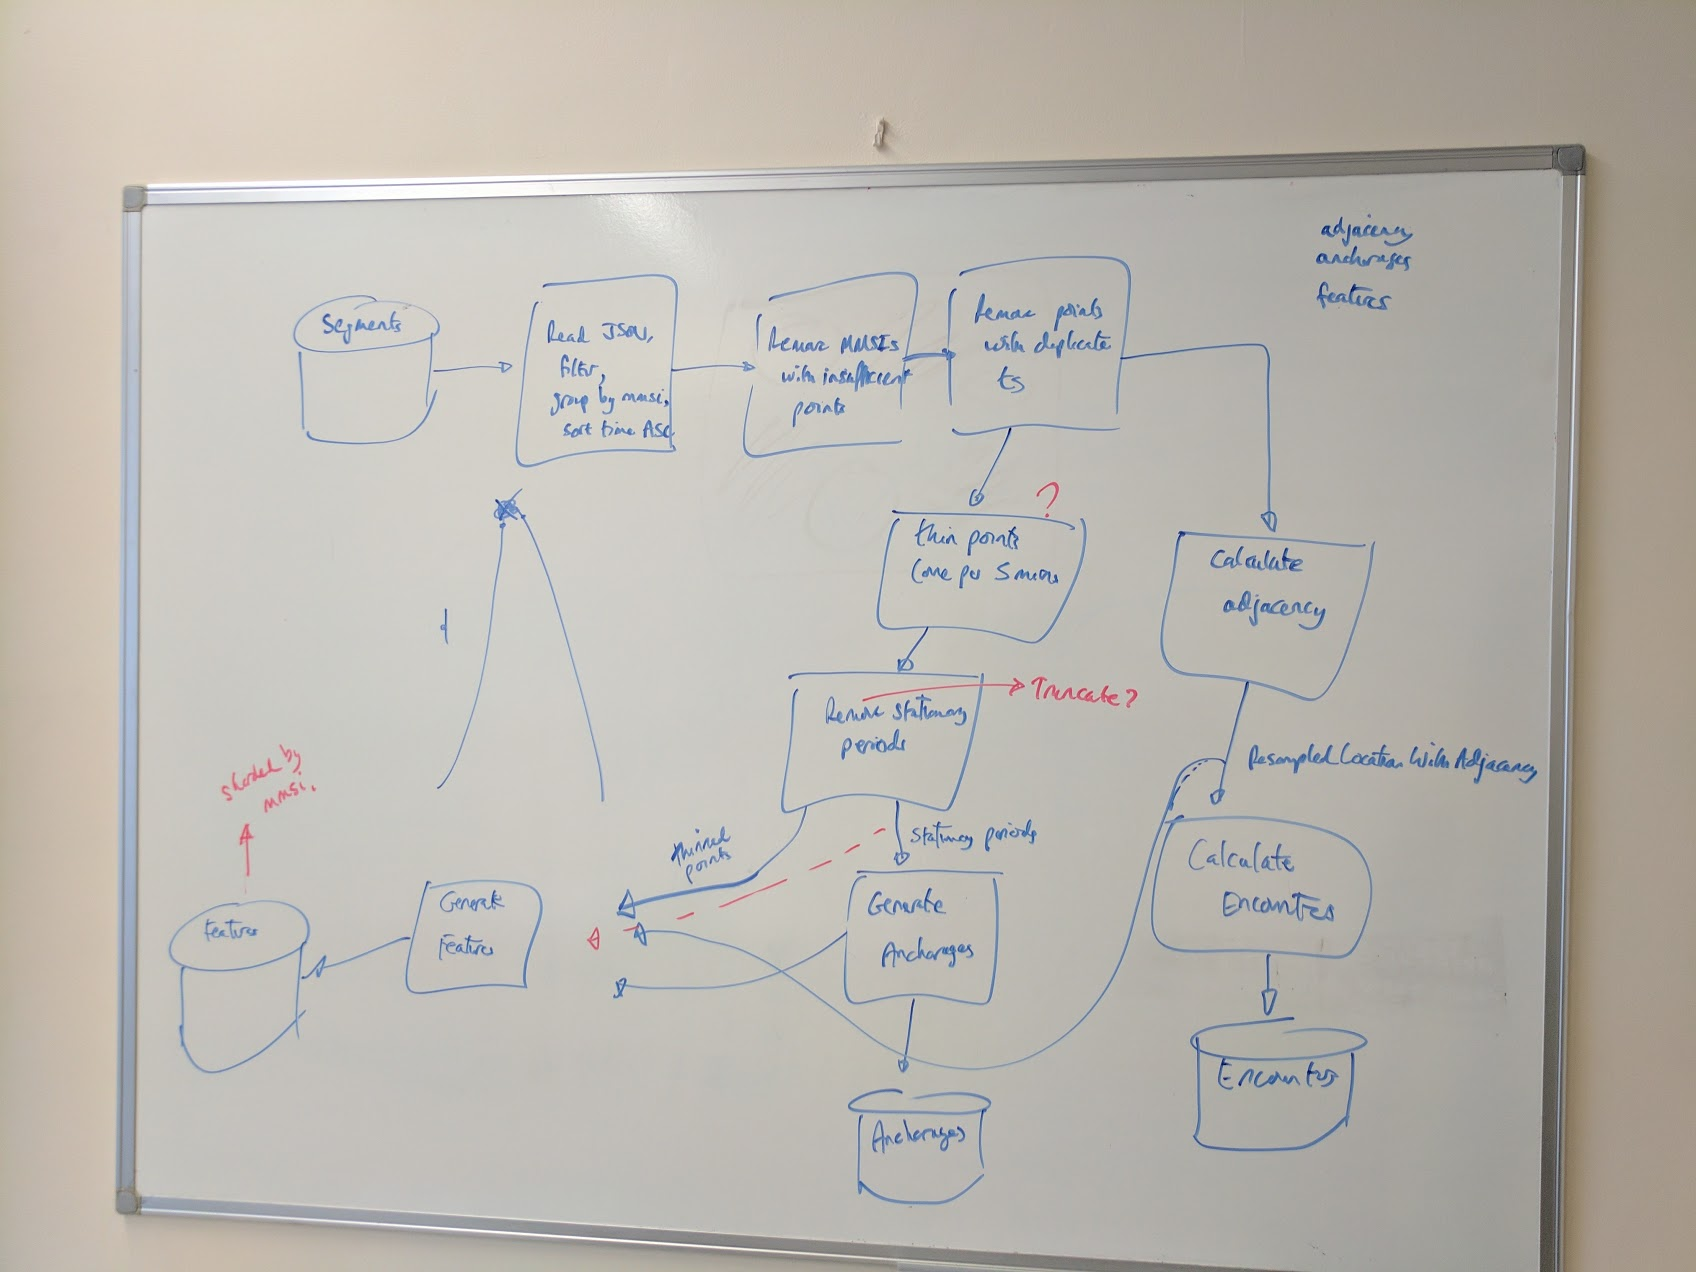 adjacency
anchorages
features
Segments
Read JSON,
filter,
group by mmsi,
sort time ASC
Remove MMSIs
with insufficient
points
Remove points
with duplicate
ts
?
thin points
(one per 5 mins
Calculate
adjacency
Remove stationary
periods
Truncate?
Resampled Location With Adjacency
sharded by
mmsi.
thinned
points
Stationary periods
Calculate
Encounters
Features
Generate
Features
Generate
Anchorages
Encounters
Anchorages